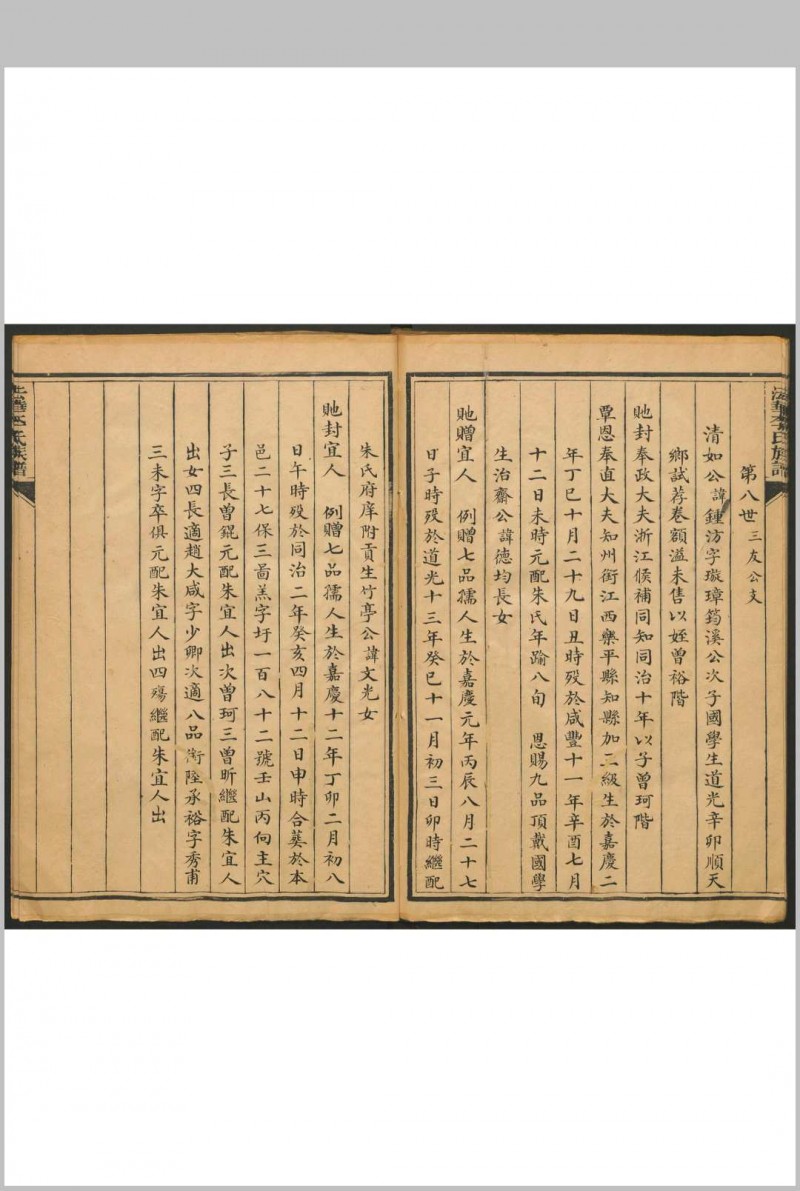 第八世 三友公支
清如公諱鍾汸字璇璋筠溪公次子國學生道光辛卯順天
鄉試荐卷額溢未售以姪曾裕階
貤封奉政大夫浙江候補同知同治十年以子曾珂階
覃恩奉直大夫知州銜江西樂平縣知縣加二級生於嘉慶二
年丁巳十月二十九日丑時歿於咸豐十一年辛酉七月
十二日未時元配朱氏年踰八旬 恩賜九品頂戴國學
生治齋公諱德均長女
貤贈宜人 例贈七品孺人生於嘉慶元年丙辰八月二十七
日子時歿於道光十三年癸巳十一月初三日卯時繼配
朱氏府庠附貢生竹亭公諱文光女
貤封宜人 例贈七品孺人生於嘉慶十二年丁卯二月初八
日午時歿於同治二年癸亥四月十二日申時合葬於本
邑二十七保三啚羔字圩一百八十二號壬山丙向主穴
子三長曾錕元配朱宜人出次曾珂三曾昕繼配朱宜人
出女四長適趙大咸字少卿次適八品銜陸承裕字秀甫
三未字卒俱元配朱宜人出四殤繼配朱宜人出